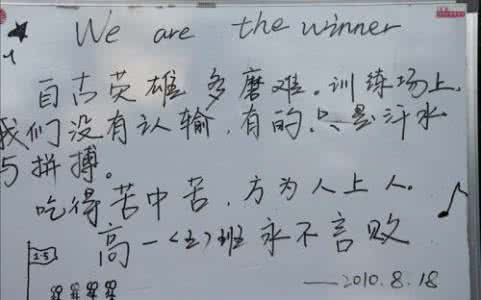 We are the winner
自古英雄多磨难。训练场上,
我们没有认输,有的只是汗水
与拼搏。
吃得苦中苦,方为人上人。
高一<五>班永不言败
1-5
——2010.8.18